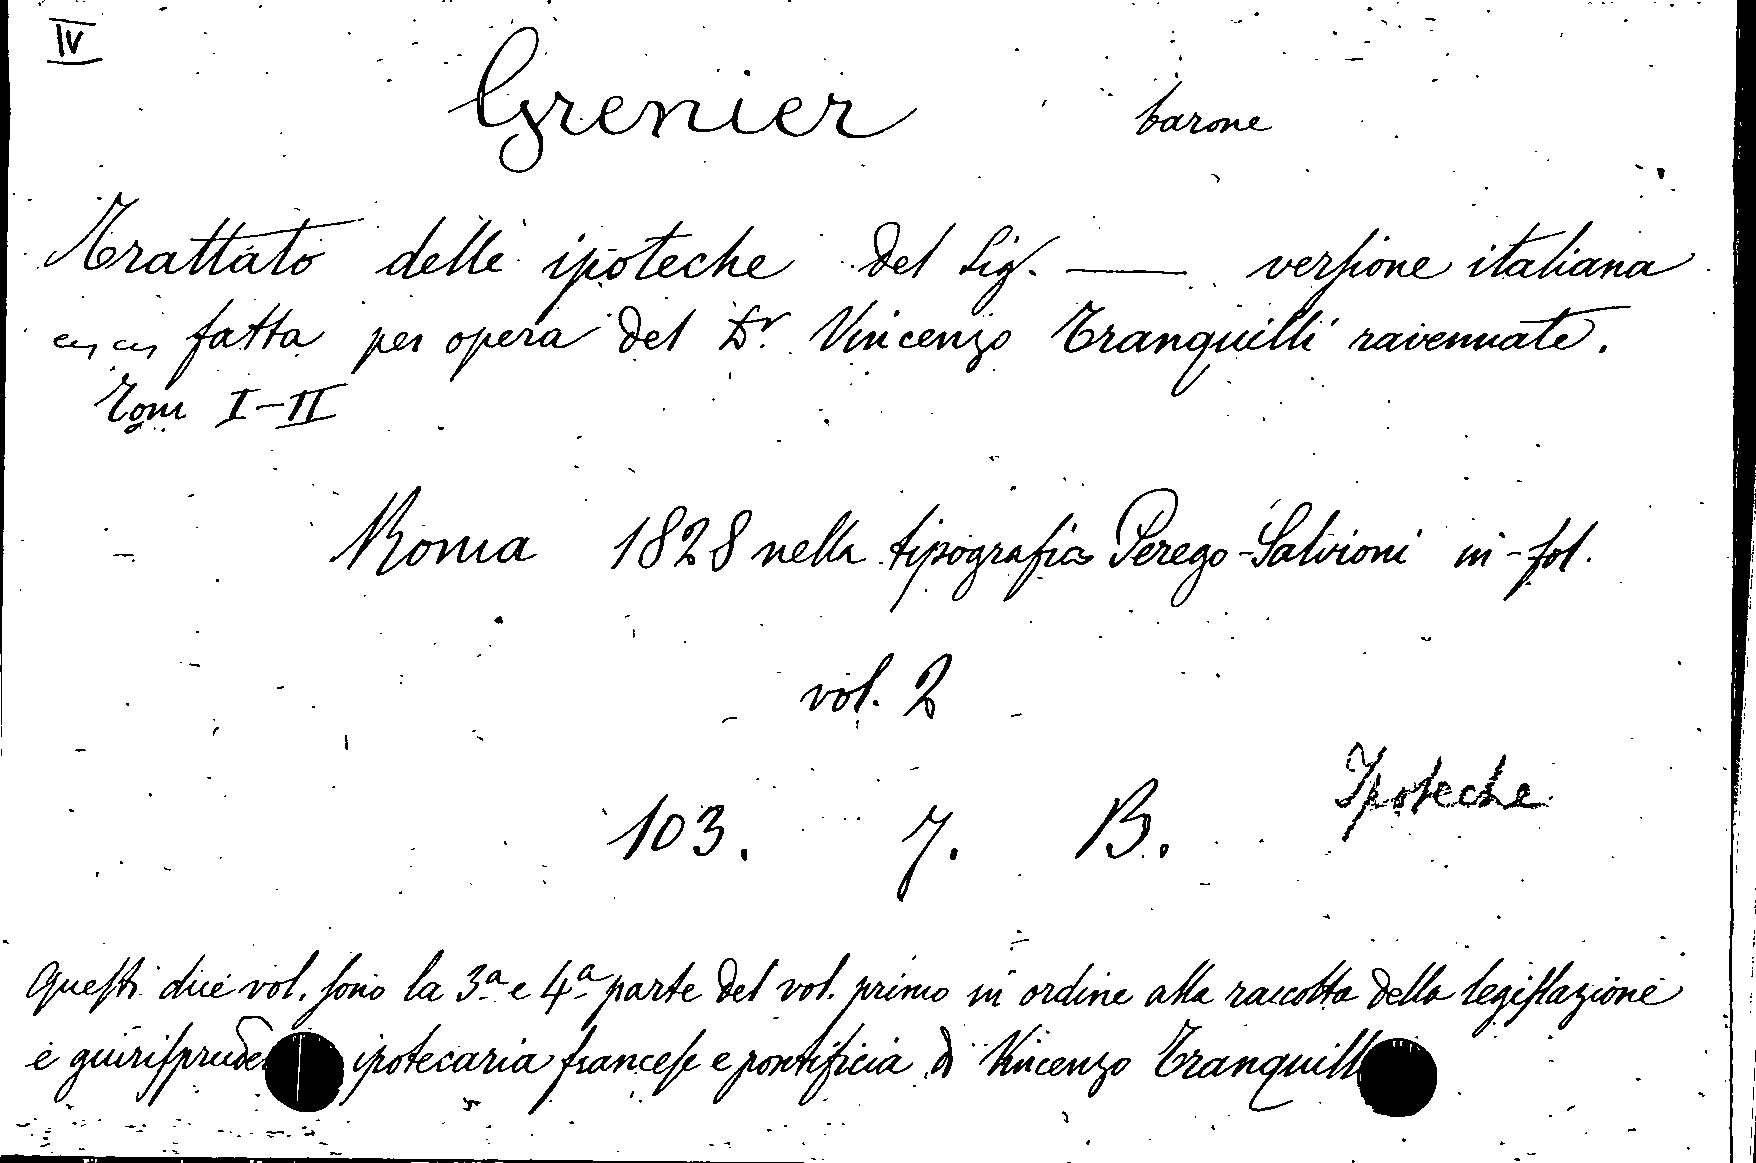 IV
Grenier barone
Trattato delle ipoteche del Sig. —— versione italiana
fatta per opera del Dr. Vincenzo Tranquilli ravennate.
Tom I-II
Roma 1828 nella tipografia Perego-Salvioni in-fol.
vol. 2
Ipoteche
103. 7. B.
Questi due vol. sono la 3ª e 4ª parte del vol. primo in ordine alla raccolta della legislazione
e ipotecaria francese e pontificia di Vincenzo